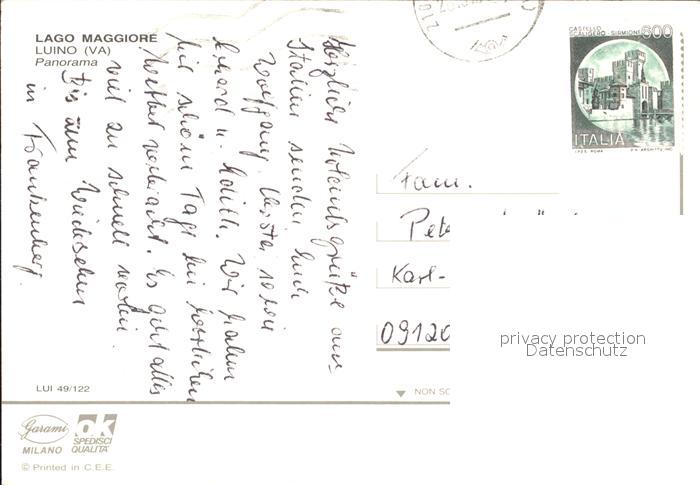 LAGO MAGGIORE
LUINO (VA)
Panorama
Herzliche Urlaubsgrüße aus
Italien senden Euch
Wolfgang, Kerstin, sowie
Erhard u. Edith. Wir haben
hier schöne Tage bei herrlichem
Wetter verbracht. Es geht alles
viel zu schnell vorbei.
Bis zum Wiedersehen
in Frankenberg.
CASTELLO
SCALIGERO - SIRMIONE
600
ITALIA
I.P.Z.S. ROMA
Fam.
Pete
Karl-
09120
privacy protection
Datenschutz
LUI 49/122
NON SC
Garami
MILANO
ok
SPEDISCI
QUALITA'
© Printed in C.E.E.